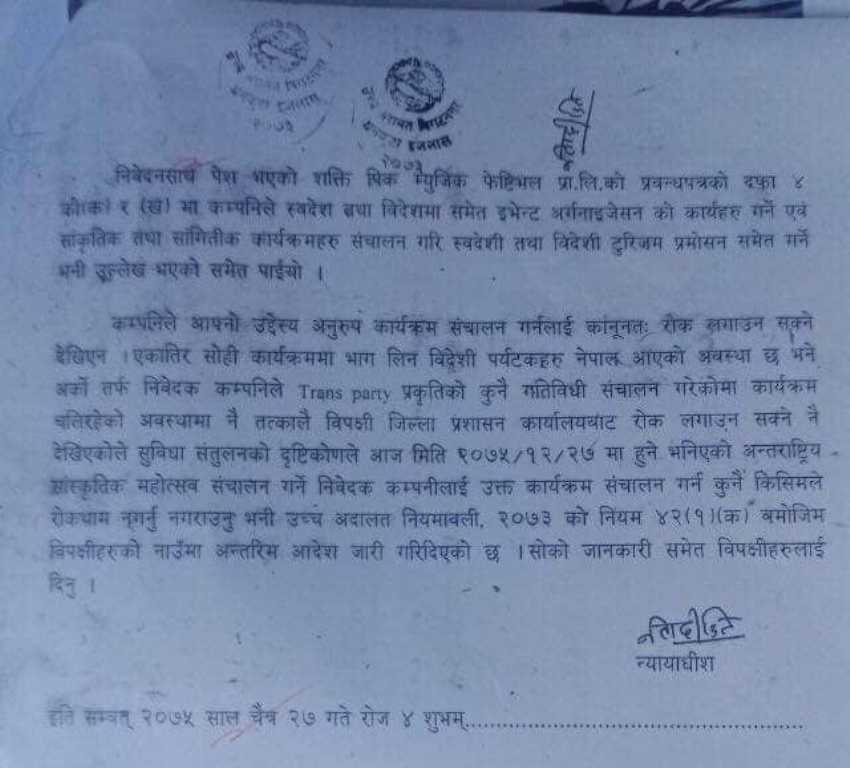 उच्च अदालत विराटनगर
धनकुटा इजलास
२०७३
उच्च अदालत विराटनगर
धनकुटा इजलास
२०७३
निवेदनसाथ पेश भएको शक्ति पिक म्युजिक फेष्टिभल प्रा.लि.को प्रवन्धपत्रको दफा ४
को(क) र (ख) मा कम्पनिले स्वदेश तथा विदेशमा समेत इभेन्ट अर्गनाइजेसन को कार्यहरु गर्ने एवं
सांकृतिक तथा सांगितीक कार्यक्रमहरु संचालन गरि स्वदेशी तथा विदेशी टुरिजम प्रमोसन समेत गर्ने
भनी उल्लेख भएको समेत पाईयो ।
कम्पनिले आफ्नो उद्देस्य अनुरुप कार्यक्रम संचालन गर्नलाई कानूनतः रोक लगाउन सक्ने
देखिएन । एकातिर सोही कार्यक्रममा भाग लिन विदेशी पर्यटकहरु नेपाल आएको अवस्था छ भने
अर्को तर्फ निवेदक कम्पनिले Trans party प्रकृतिको कुनै गतिविधी संचालन गरेकोमा कार्यक्रम
चलिरहेको अवस्थामा नै तत्कालै विपक्षी जिल्ला प्रशासन कार्यालयबाट रोक लगाउन सक्ने नै
देखिएकोले सुविधा संतुलनको दृष्टिकोणले आज मिति २०७५/१२/२७ मा हुने भनिएको अन्तराष्ट्रिय
सांस्कृतिक महोत्सव संचालन गर्ने निवेदक कम्पनीलाई उक्त कार्यक्रम संचालन गर्न कुनै किसिमले
रोकथाम नगर्नु नगराउनु भनी उच्च अदालत नियमावली, २०७३ को नियम ४२(१)(क) बमोजिम
विपक्षीहरुको नाउँमा अन्तरिम आदेश जारी गरिदिएको छ । सोको जानकारी समेत विपक्षीहरुलाई
दिनु ।
न्यायाधीश
इति सम्वत् २०७५ साल चैत्र २७ गते रोज ४ शुभम्......................................................